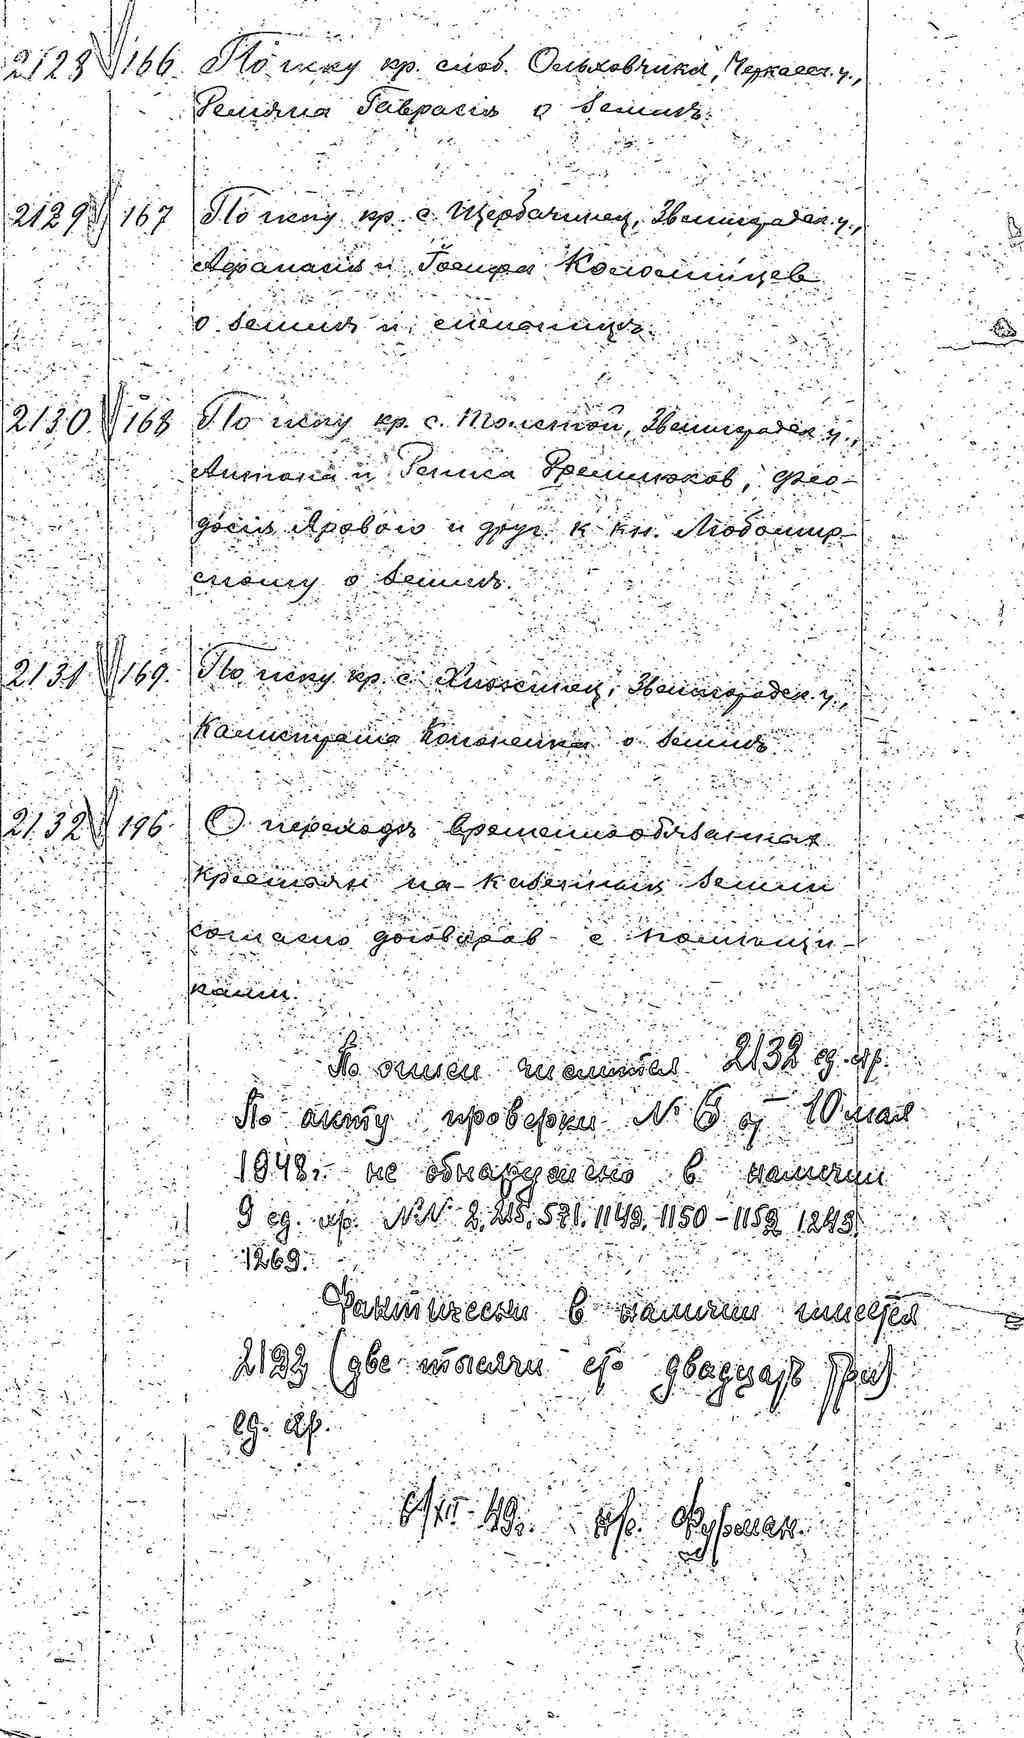 2128 166. По иску кр. слоб. Ольховчика, Черкасск. у.,
Демяна Гаврася о земле.
2129 167 По иску кр. с. Щербачинец, Звенигородск. у.,
Афанасия и Коломийцев
о земле и
2130 168 По иску кр. с. Толстой, Звенигородск. у.,
Антона и Дениса Еремиюков, Фео-
досия Ярового и друг. к кн. Любомир-
скому о земле.
2131 169. По иску кр. с. Хижинец, Звенигородск. у.,
Калистрата Кононенка о земле
2132 196. О переходе временнообязанных
крестьян на казенныя земли
согласно договоров с помещи-
ками.
По описи числится 2132 ед. хр.
По акту проверки № 6 от 10 мая
1948 г. не обнаружено в наличии
9 ед. хр. №№ 2, 215, 571, 1149, 1150-1152, 1243,
1269.
Фактически в наличии имеется
2123 (две тысячи сто двадцать три)
ед. хр.
6/XII-49г. Фурман.